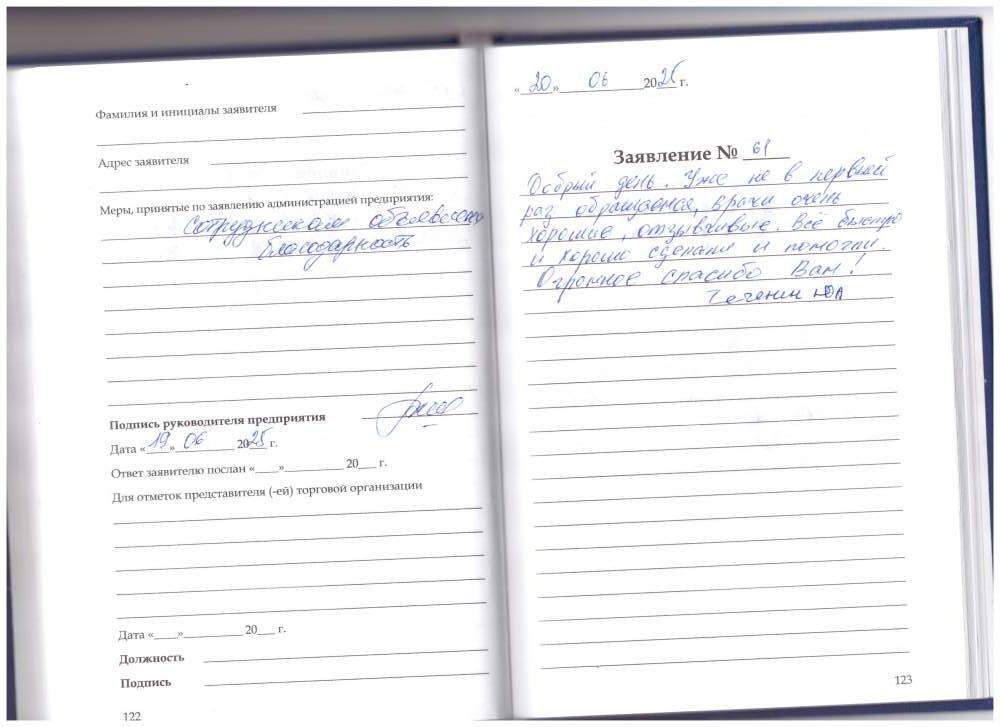 Фамилия и инициалы заявителя
Адрес заявителя
Меры, принятые по заявлению администрацией предприятия:
Сотрудникам объявлена
благодарность
Подпись руководителя предприятия
Дата «19» 06 2025 г.
Ответ заявителю послан «___» ___ 20___ г.
Для отметок представителя (-ей) торговой организации
Дата «___» ___ 20___ г.
Должность
Подпись
122
«20» 06 2025 г.
Заявление № 61
Добрый день. Уже не в первый
раз обращаемся, врачи очень
хорошие, отзывчивые. Всё быстро
и хорошо сделали и помогли.
Огромное спасибо Вам!
123